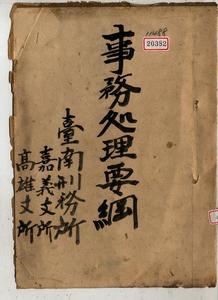 事務処理要綱
11488
20382
臺南刑務所
嘉義支所
高雄支所